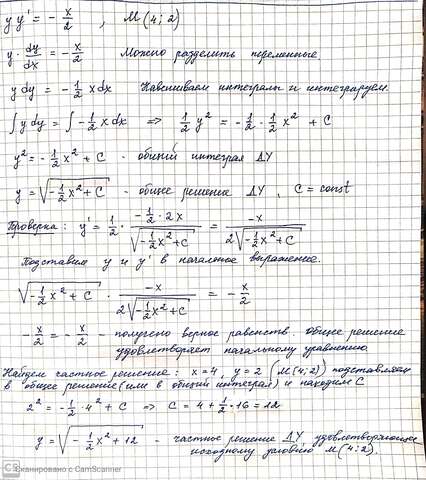 y y' = - x/2 , M(4; 2)
y · dy/dx = - x/2 Можно разделить переменные.
y dy = - 1/2 x dx Навешиваем интегралы и интегрируем.
∫ y dy = ∫ - 1/2 x dx => 1/2 y² = - 1/2 · 1/2 x² + C
y² = - 1/2 x² + C - общий интеграл ДУ
y = √(- 1/2 x² + C) - общее решение ДУ, C = const
Проверка: y' = 1/2 · (- 1/2 · 2x)/√(- 1/2 x² + C) = -x/(2√(- 1/2 x² + C))
Подставим y и y' в начальное выражение.
√(- 1/2 x² + C) · -x/(2√(- 1/2 x² + C)) = - x/2
- x/2 = - x/2 - получено верное равенств. Общее решение
удовлетворяет начальному уравнению.
Найдем частное решение: x = 4, y = 2 (M(4; 2)) подставляем
в общее решение (или в общий интеграл) и находим C
2² = - 1/2 · 4² + C => C = 4 + 1/2 · 16 = 12
y = √(- 1/2 x² + 12) - частное решение ДУ удовлетворяющее
исходному условию M(4; 2).
CS Сканировано с CamScanner